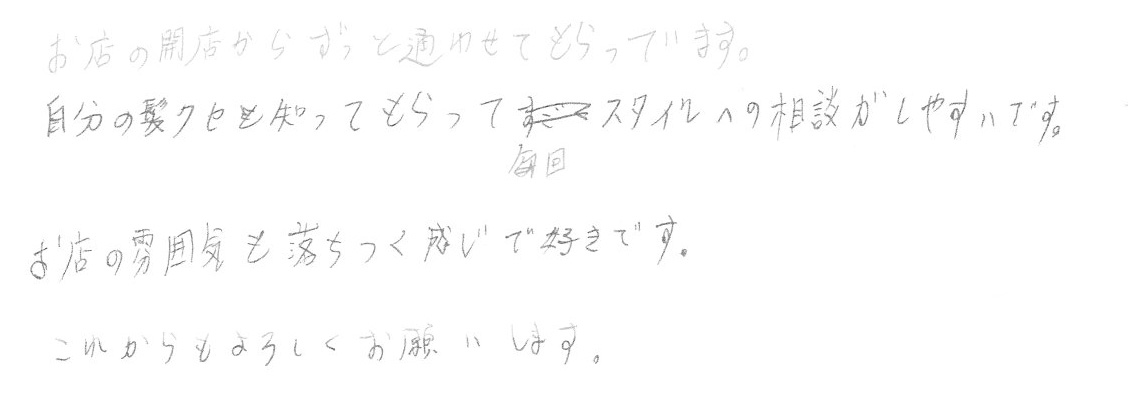 お店の開店からずっと通わせてもらっています。
自分の髪クセも知ってもらってスタイルへの相談がしやすいです。
毎回
お店の雰囲気も落ちつく感じで好きです。
これからもよろしくお願いします。